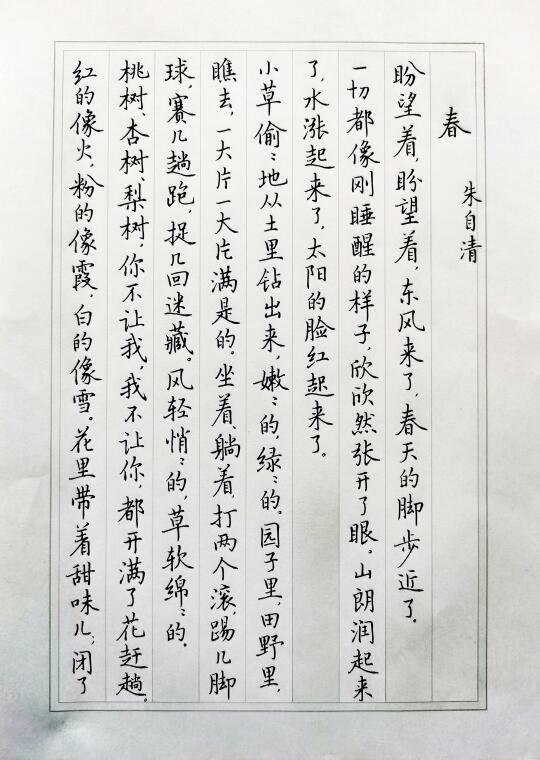 春
朱自清
盼望着，盼望着，东风来了，春天的脚步近了。
一切都像刚睡醒的样子，欣欣然张开了眼。山朗润起来
了，水涨起来了，太阳的脸红起来了。
小草偷〻地从土里钻出来，嫩〻的，绿〻的。园子里，田野里，
瞧去，一大片一大片满是的。坐着，躺着，打两个滚，踢几脚
球，赛几趟跑，捉几回迷藏。风轻悄〻的，草软绵〻的。
桃树、杏树、梨树，你不让我，我不让你，都开满了花赶趟。
红的像火，粉的像霞，白的像雪。花里带着甜味儿；闭了